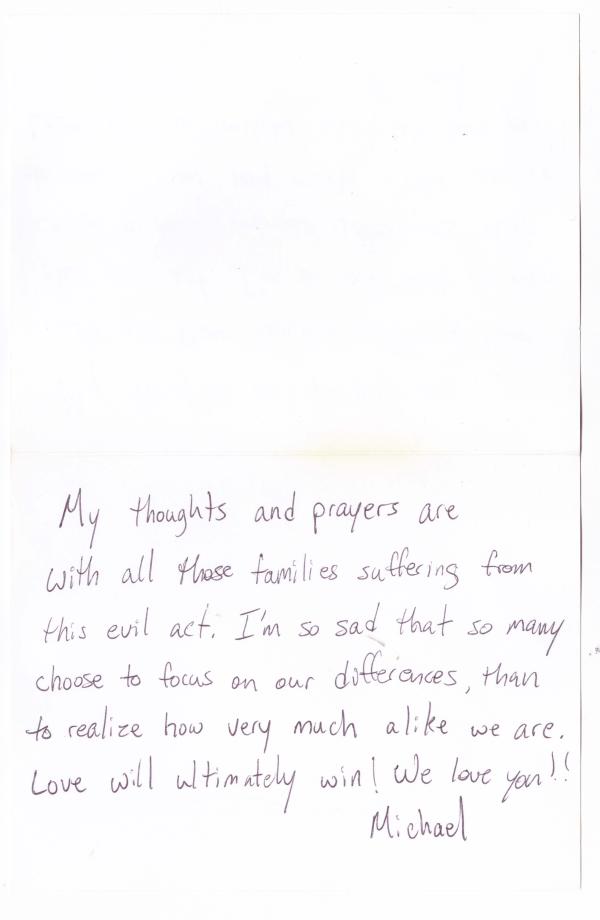 My thoughts and prayers are
with all those families suffering from
this evil act. I'm so sad that so many
choose to focus on our differences, than
to realize how very much alike we are.
Love will ultimately win! We love you!!
Michael